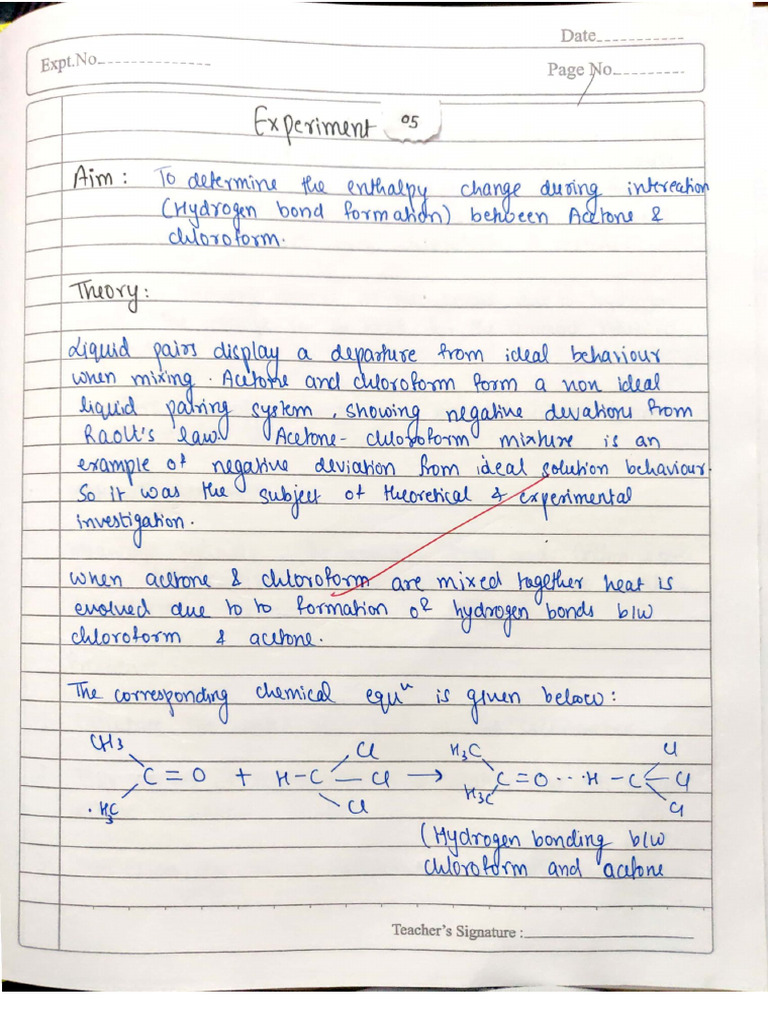 Date
Expt.No.
Page No.
Experiment 05
Aim : To determine the enthalpy change during intereation
(Hydrogen bond formation) between Acetone &
chloroform.
Theory:
Liquid pairs display a departure from ideal behaviour
when mixing. Acetone and chloroform form a non ideal
liquid pairing system, showing negative deviations from
Raoult's law. Acetone-chloroform mixture is an
example of negative deviation from ideal solution behaviour.
So it was the subject of theoretical & experimental
investigation.
when acetone & chloroform are mixed together heat is
evolved due to to formation of hydrogen bonds b/w
chloroform & acetone.
The corresponding chemical equⁿ is given below:
CH3 Cl H3C Cl
C=O + H-C-Cl → C=O···H-C-Cl
H3C Cl H3C Cl
(Hydrogen bonding b/w
chloroform and acetone
Teacher's Signature :